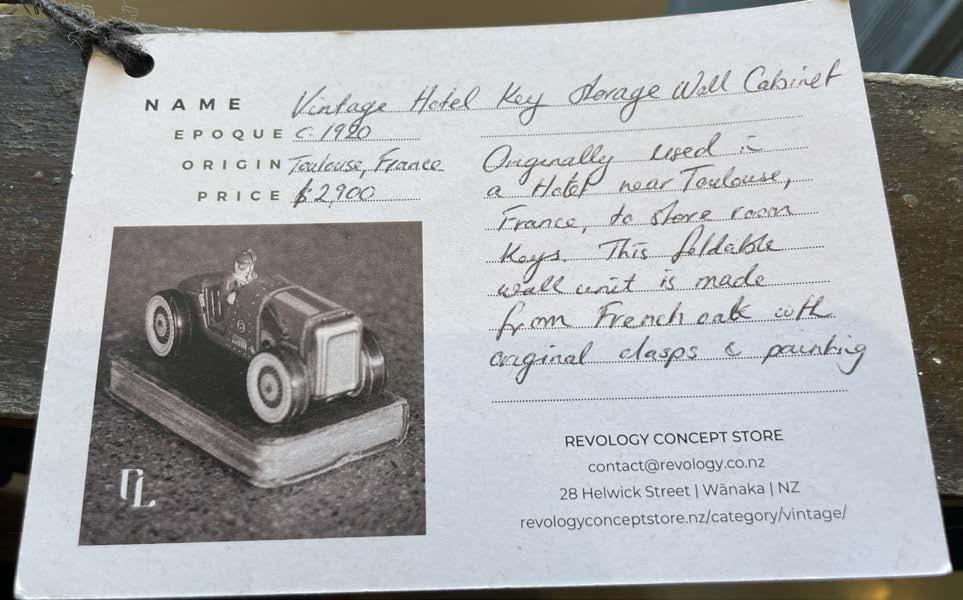 NAME Vintage Hotel Key Storage Wall Cabinet
EPOQUE C. 1920
ORIGIN Toulouse, France
PRICE $2,900
Originally used in
a Hotel near Toulouse,
France, to store room
Keys. This foldable
wall unit is made
from French oak with
original clasps & painting
RL
REVOLOGY CONCEPT STORE
contact@revology.co.nz
28 Helwick Street | Wānaka | NZ
revologyconceptstore.nz/category/vintage/